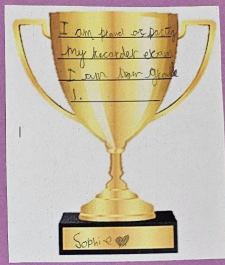 I am proud of
my Recorder exam
I am now grade
1.
Sophie